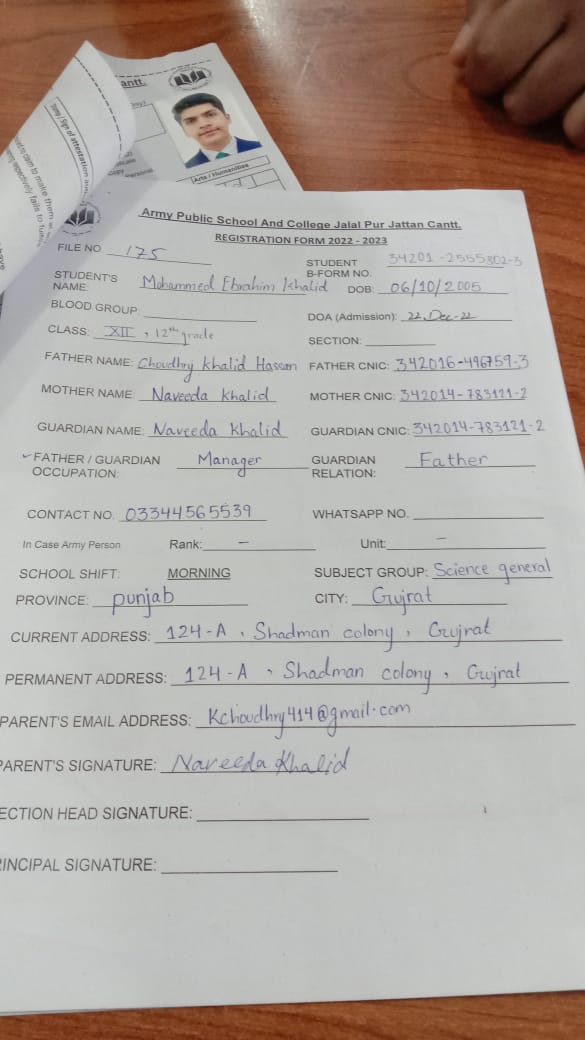 antt.
Arts / Humanities
Army Public School And College Jalal Pur Jattan Cantt.
REGISTRATION FORM 2022 - 2023
FILE NO 175
STUDENT B-FORM NO. 34201-2555802-3
STUDENT'S NAME: Mohammed Ebrahim Khalid DOB: 06/10/2005
BLOOD GROUP: DOA (Admission): 22, Dec-22
CLASS: XII, 12th grade SECTION:
FATHER NAME: Choudhry Khalid Hassan FATHER CNIC: 342016-496759-3
MOTHER NAME: Naveeda Khalid MOTHER CNIC: 342014-783121-2
GUARDIAN NAME: Naveeda Khalid GUARDIAN CNIC: 342014-783121-2
FATHER / GUARDIAN OCCUPATION: Manager GUARDIAN RELATION: Father
CONTACT NO. 03344565539 WHATSAPP NO.
In Case Army Person Rank: - Unit: -
SCHOOL SHIFT: MORNING SUBJECT GROUP: Science general
PROVINCE: punjab CITY: Gujrat
CURRENT ADDRESS: 124-A, Shadman colony, Gujrat
PERMANENT ADDRESS: 124-A, Shadman colony, Gujrat
PARENT'S EMAIL ADDRESS: Kchoudhry414@gmail.com
PARENT'S SIGNATURE: Naveeda Khalid
ECTION HEAD SIGNATURE:
RINCIPAL SIGNATURE: